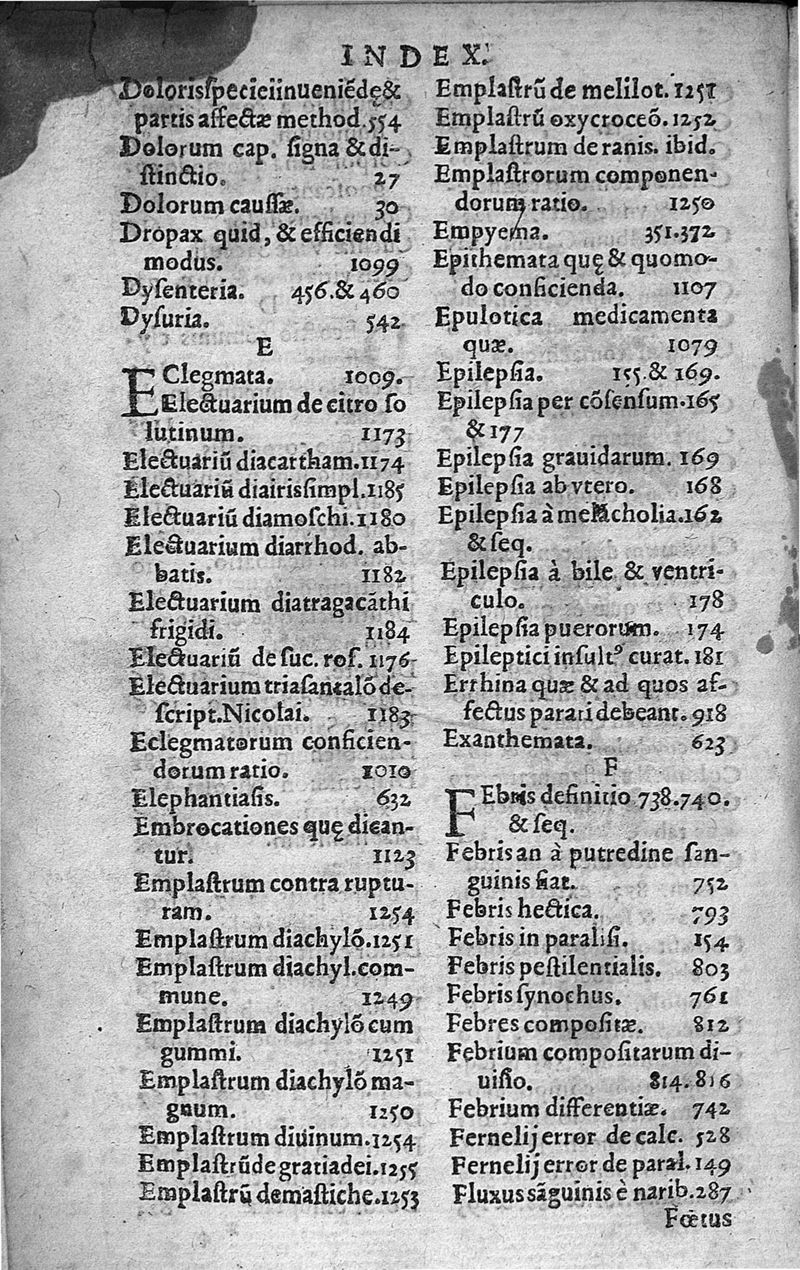 INDEX.
Doloris speciei inueniẽdę &
partis affectæ method. 554
Dolorum cap. signa & di-
stinctio. 27
Dolorum caussæ. 30
Dropax quid, & efficiendi
modus. 1099
Dysenteria. 456. & 460
Dysuria. 542
E
EClegmata. 1009.
Electuarium de citro so
lutinum. 1173
Electuariũ diacartham. 1174
Electuariũ diairis simpl. 1185
Electuariũ diamoschi. 1180
Electuarium diarrhod. ab-
batis. 1182
Electuarium diatragacãthi
frigidi. 1184
Electuariũ de suc. ros. 1176
Electuarium triasantalõ de-
script. Nicolai. 1183
Eclegmatorum conficien-
dorum ratio. 1010
Elephantiasis. 632
Embrocationes quę dican-
tur. 1123
Emplastrum contra ruptu-
ram. 1254
Emplastrum diachylõ. 1251
Emplastrum diachyl. com-
mune. 1249
Emplastrum diachylõ cum
gummi. 1251
Emplastrum diachylõ ma-
gnum. 1250
Emplastrum diuinum. 1254
Emplastrũ de gratia dei. 1255
Emplastrũ de mastiche. 1253
Emplastrũ de melilot. 1251
Emplastrũ oxycroceõ. 1252
Emplastrum de ranis. ibid.
Emplastrorum componen-
dorum ratio. 1250
Empyema. 351. 372
Epithemata quę & quomo-
do conficienda. 1107
Epulotica medicamenta
quæ. 1079
Epilepsia. 155. & 169.
Epilepsia per cõsensum. 165
& 177
Epilepsia grauidarum. 169
Epilepsia ab vtero. 168
Epilepsia à melãcholia. 162
& seq.
Epilepsia à bile & ventri-
culo. 178
Epilepsia puerorum. 174
Epileptici insultꝰ curat. 181
Errhina quæ & ad quos af-
fectus parari debeant. 918
Exanthemata. 623
F
FEbris definitio 738. 740.
& seq.
Febris an à putredine san-
guinis fiat. 752
Febris hectica. 793
Febris in paralisi. 154
Febris pestilentialis. 803
Febris synochus. 761
Febres compositæ. 812
Febrium compositarum di-
uisio. 814. 816
Febrium differentiæ. 742
Fernelij error de calc. 528
Fernelij error de paral. 149
Fluxus sãguinis è narib. 287
Fœtus